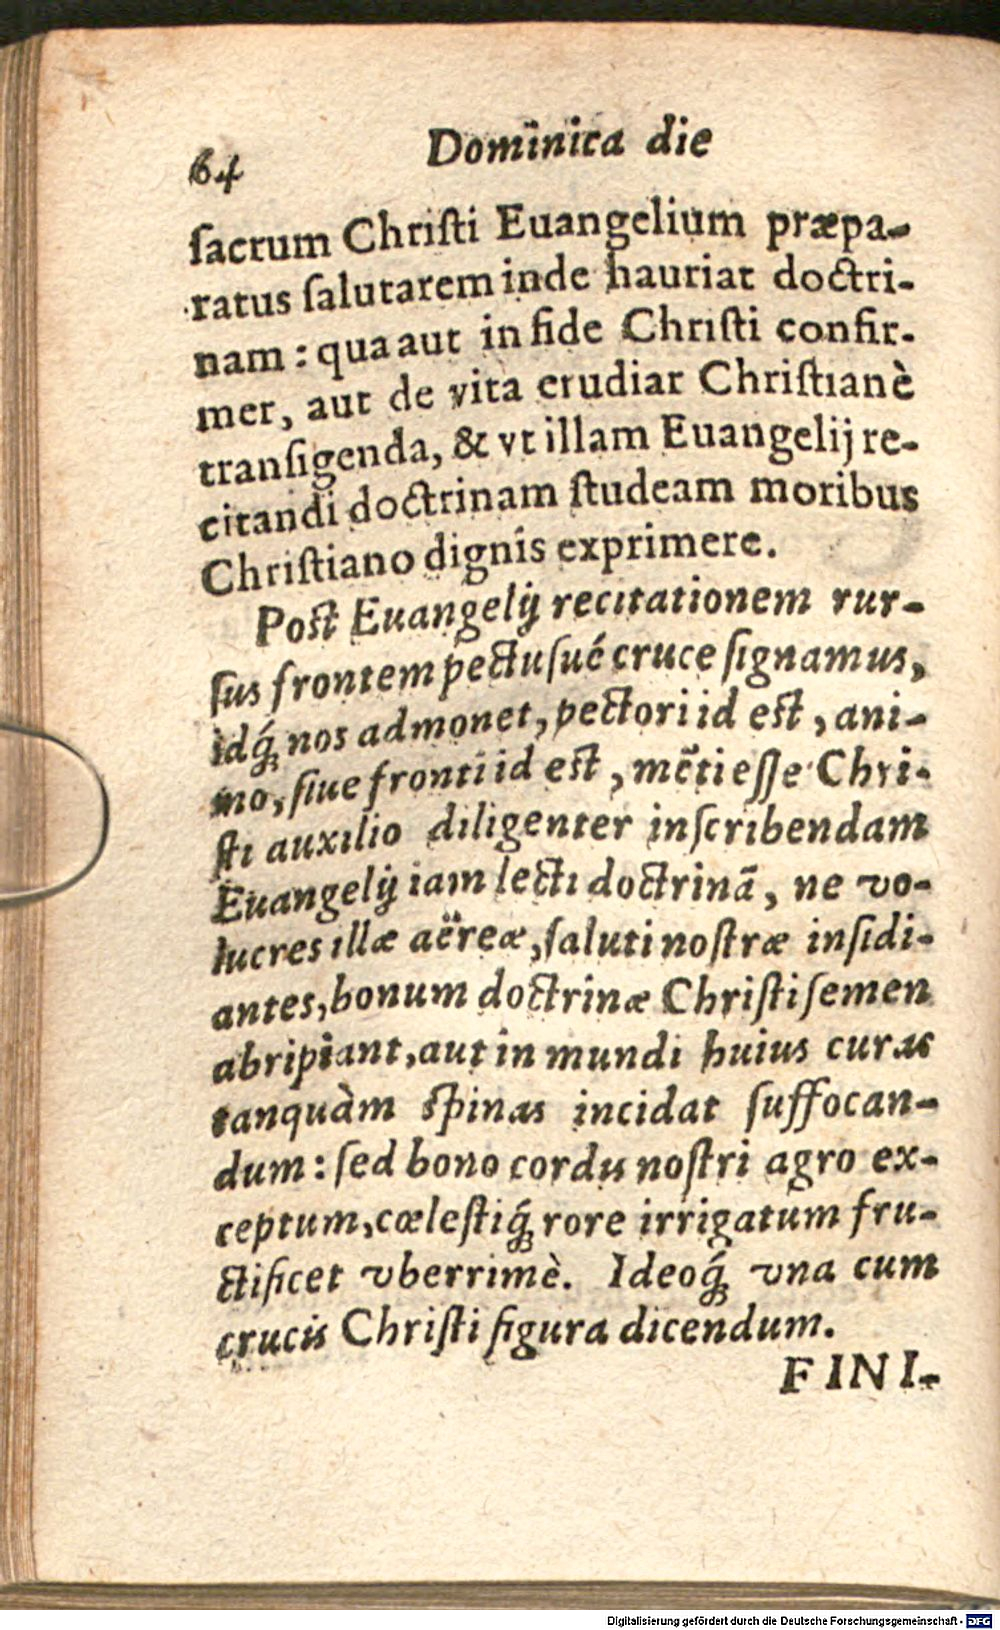 64 Dominica die
ſacrum Christi Euangelium præpa-
ratus ſalutarem inde hauriat doctri-
nam: qua aut in fide Chriſti confir-
mer, aut de vita erudiar Chriſtianè
tranſigenda, & vt illam Euangelij re-
citandi doctrinam ſtudeam moribus
Chriſtiano dignis exprimere.
Poſt Euangelij recitationem rur-
ſus frontem pectuſué cruce ſignamus,
idq́; nos admonet, pectori id eſt, ani-
mo, ſiue fronti id eſt, mẽti eſſe Chri-
ſti auxilio diligenter inſcribendam
Euangelij iam lecti doctrinã, ne vo-
lucres illæ aëreæ, ſaluti noſtræ inſidi-
antes, bonum doctrinæ Chriſti ſemen
abripiant, aut in mundi huius curas
tanquàm ſpinas incidat ſuffocan-
dum: ſed bono cordis noſtri agro ex-
ceptum, cœleſtiq́; rore irrigatum fru-
ctificet vberrimè. Ideoq́; vna cum
crucis Chriſti figura dicendum.
FINI-
Digitalisierung gefördert durch die Deutsche Forschungsgemeinschaft - DFG